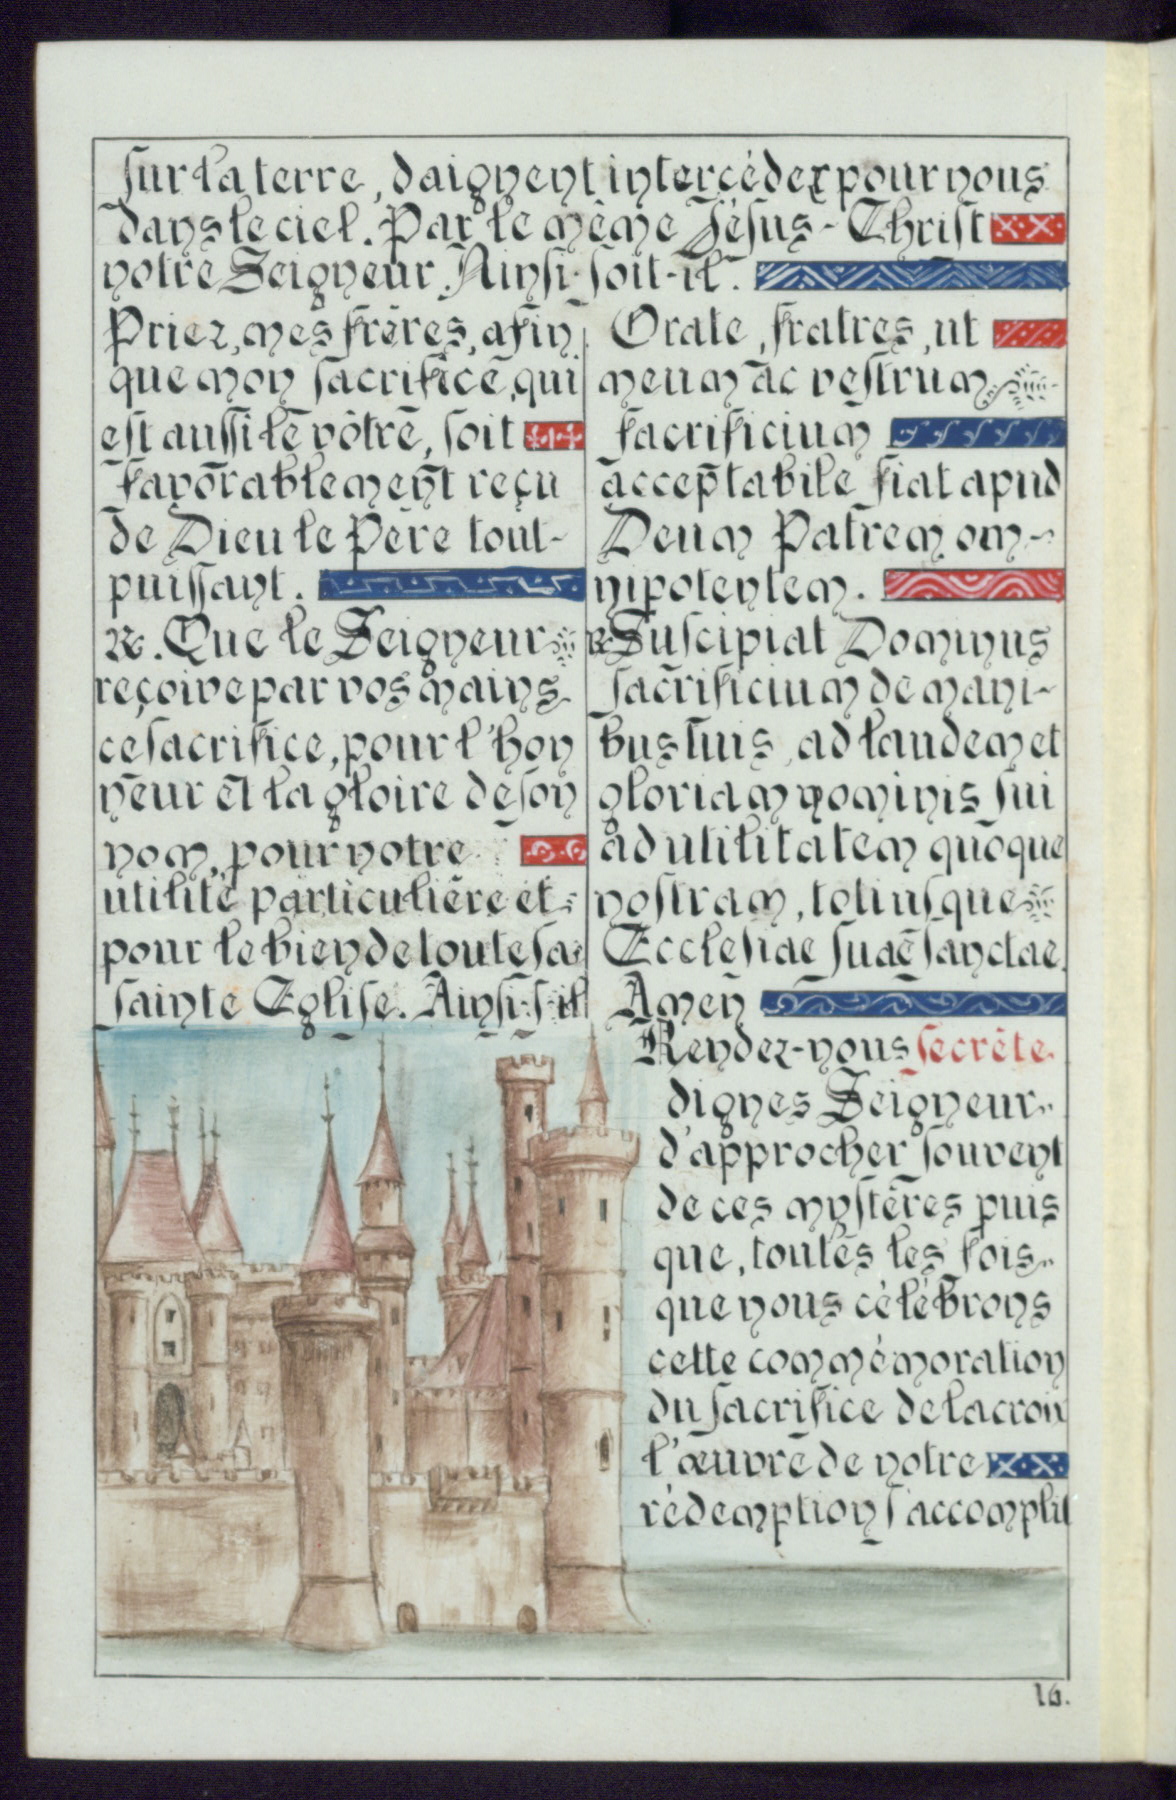 sur la terre, daignent intercéder pour nous
dans le ciel. Par le même Jésus-Christ
notre Seigneur. Ainsi soit-il.
Priez, mes frères, afin
que mon sacrifice, qui
est aussi le vôtre, soit
favorablement reçu
de Dieu le Père tout-
puissant.
℟. Que le Seigneur
reçoive par vos mains
ce sacrifice, pour l'hon
neur et la gloire de son
nom, pour notre
utilité particulière et
pour le bien de toute sa
sainte Eglise. Ainsi-s-il
Orate, fratres, ut
meum ac vestrum
sacrificium
acceptabile fiat apud
Deum Patrem om-
nipotentem.
℟ Suscipiat Dominus
sacrificium de mani-
bus tuis, ad laudem et
gloriam nominis sui
ad utilitatem quoque
nostram, totiusque
Ecclesiae suae sanctae.
Amen
Rendez-nous secrète.
dignes Seigneur
d'approcher souvent
de ces mystères puis
que, toutes les fois
que nous célébrons
cette commémoration
du sacrifice de la croix
l'œuvre de notre
rédemption s'accomplit
16.